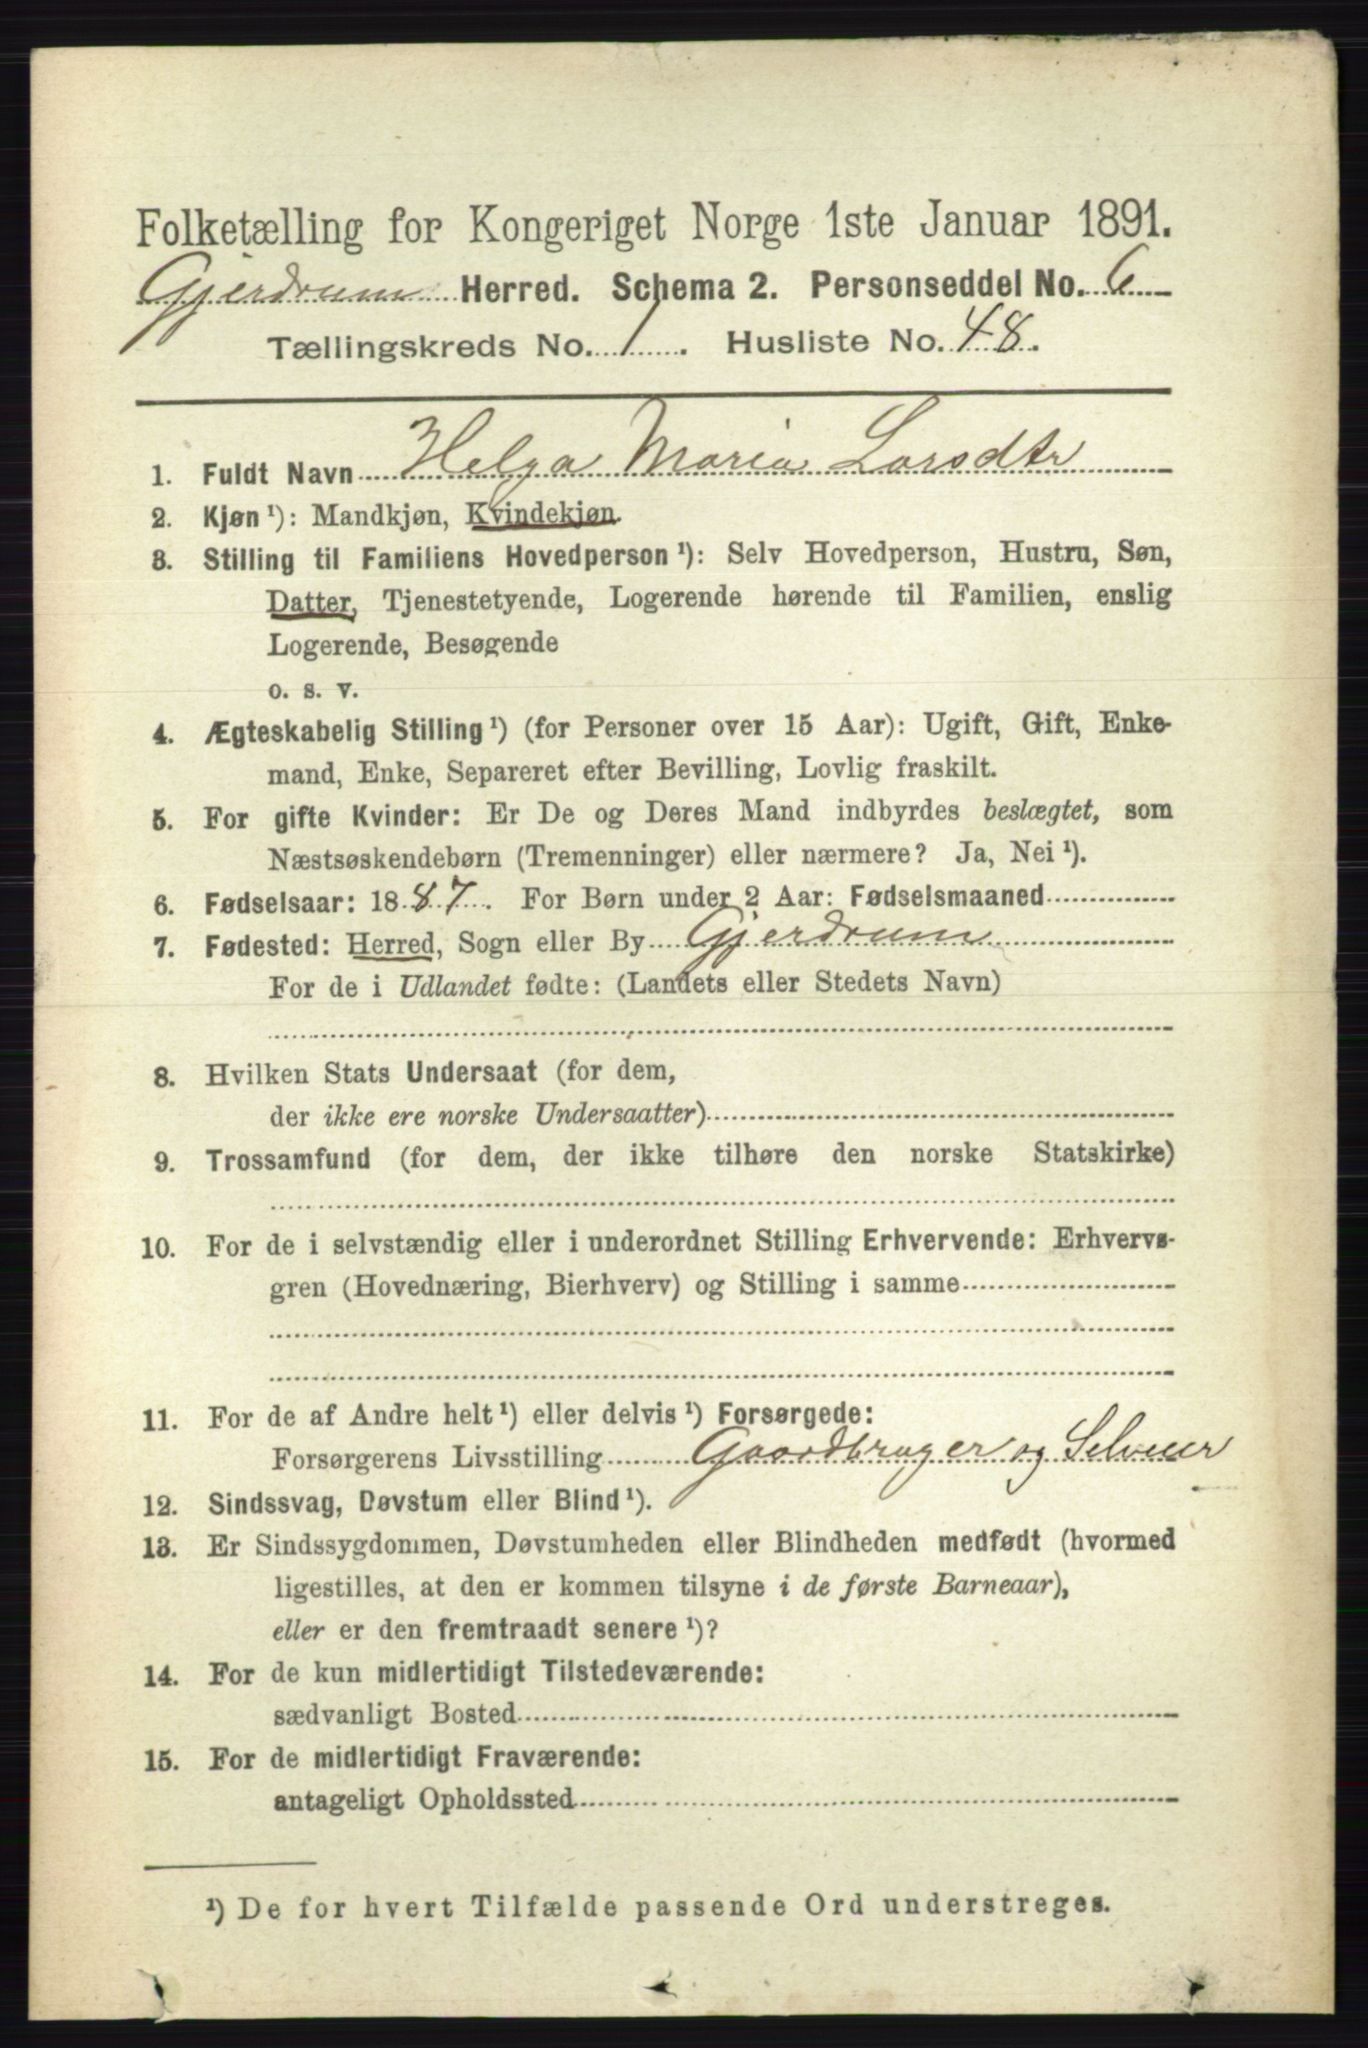 Folketælling for Kongeriget Norge 1ste Januar 1891.
Gjerdrum Herred. Schema 2. Personseddel No. 6
Tællingskreds No. 1. Husliste No. 48.
1. Fuldt Navn Helga Maria Larsdtr
2. Kjøn ¹): Mandkjøn, Kvindekjøn.
3. Stilling til Familiens Hovedperson ¹): Selv Hovedperson, Hustru, Søn,
Datter, Tjenestetyende, Logerende hørende til Familien, enslig
Logerende, Besøgende
o. s. v.
4. Ægteskabelig Stilling ¹) (for Personer over 15 Aar): Ugift, Gift, Enke-
mand, Enke, Separeret efter Bevilling, Lovlig fraskilt.
5. For gifte Kvinder: Er De og Deres Mand indbyrdes beslægtet, som
Næstsøskendebørn (Tremenninger) eller nærmere? Ja, Nei ¹).
6. Fødselsaar: 1887. For Børn under 2 Aar: Fødselsmaaned
7. Fødested: Herred, Sogn eller By Gjerdrum
For de i Udlandet fødte: (Landets eller Stedets Navn)
8. Hvilken Stats Undersaat (for dem,
der ikke ere norske Undersaatter)
9. Trossamfund (for dem, der ikke tilhøre den norske Statskirke)
10. For de i selvstændig eller i underordnet Stilling Erhvervende: Erhvervs-
gren (Hovednæring, Bierhverv) og Stilling i samme
11. For de af Andre helt ¹) eller delvis ¹) Forsørgede:
Forsørgerens Livsstilling Gaardbruger og Selveier
12. Sindssvag, Døvstum eller Blind ¹).
13. Er Sindssygdommen, Døvstumheden eller Blindheden medfødt (hvormed
ligestilles, at den er kommen tilsyne i de første Barneaar),
eller er den fremtraadt senere ¹)?
14. For de kun midlertidigt Tilstedeværende:
sædvanligt Bosted
15. For de midlertidigt Fraværende:
antageligt Opholdssted
¹) De for hvert Tilfælde passende Ord understreges.